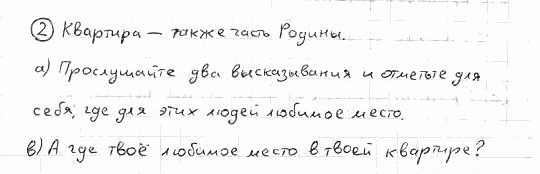 ② Квартира – также часть Родины.
а) Прослушайте два высказывания и отметьте для
себя, где для этих людей любимое место.
в) А где твоё любимое место в твоей квартире?